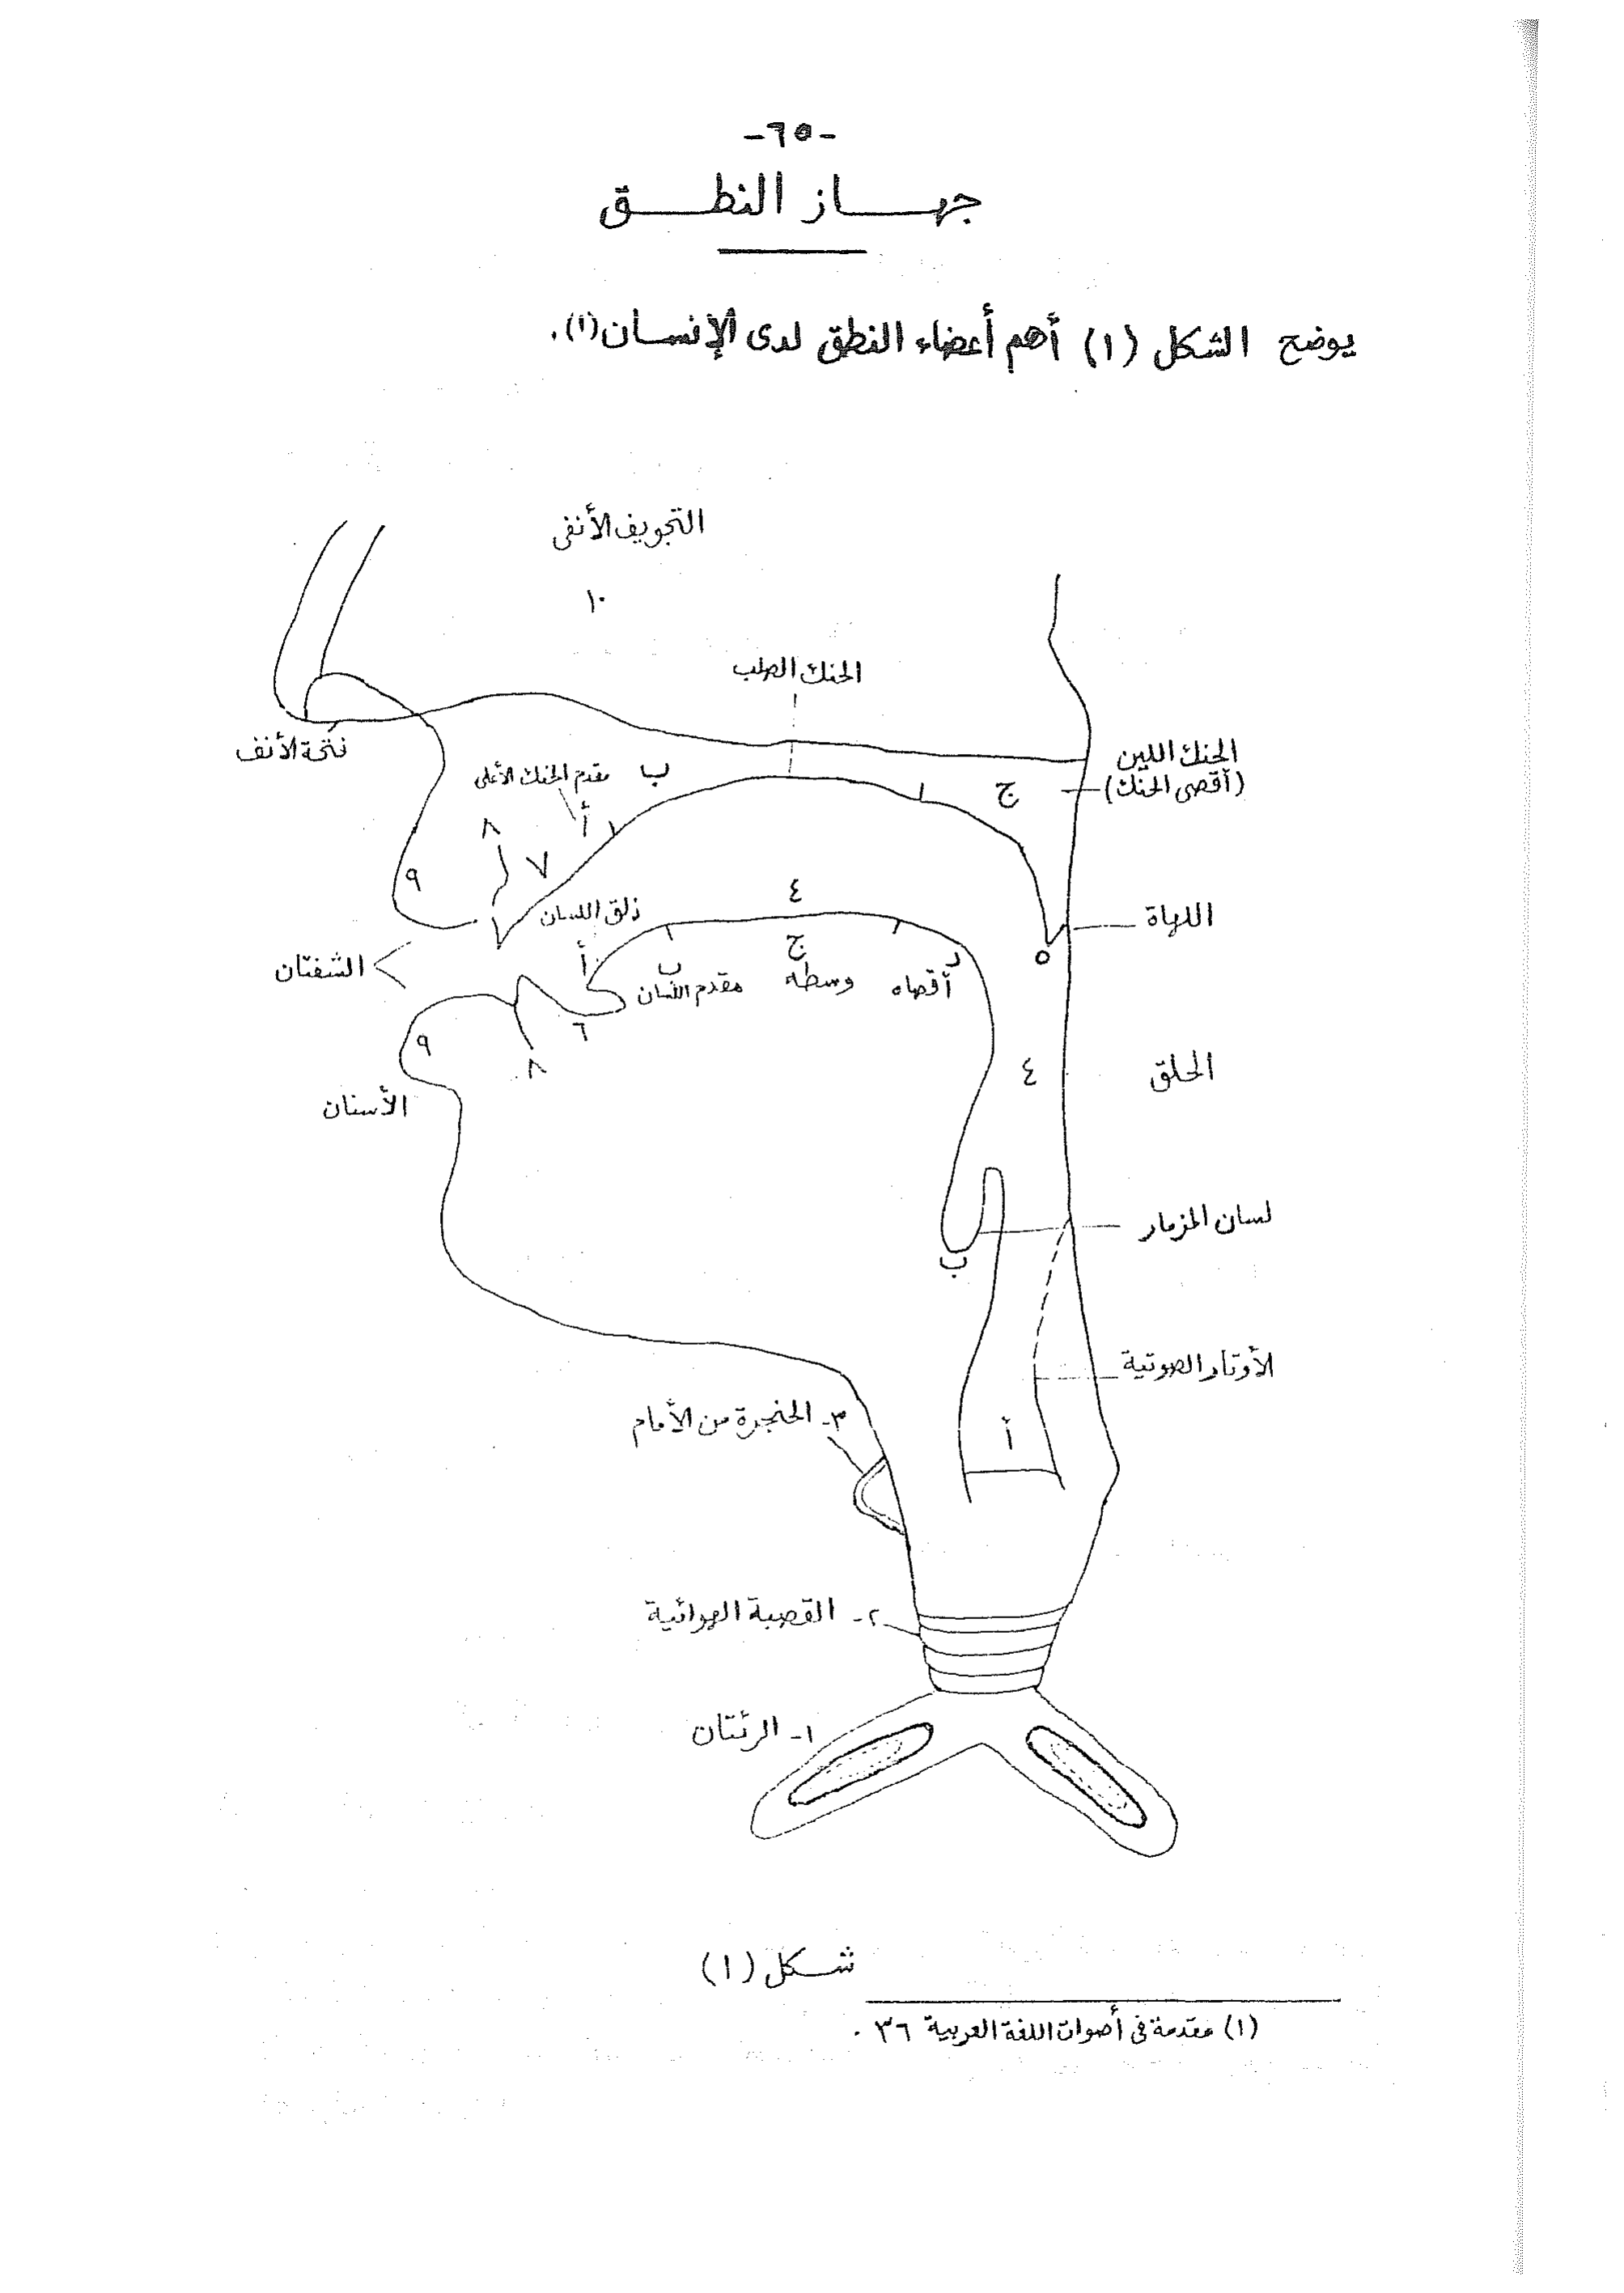 -٦٥-
جهـــاز النطـــق
يوضح الشكل (١) أهم أعضاء النطق لدى الإنسان(١).
التجويف الأنفى
١٠
الحنك الصلب
فتحة الأنف
مقدم الحنك الأعلى
ب
أ
ج
الحنك اللين
(أقصى الحنك)
٨
٧
٩
ذلق اللسان
٤
اللهاة
٥
الشفتان
أ
ب
ج
د
مقدم اللسان
وسطه
أقصاه
٦
٩
٨
الأسنان
٤
الحلق
لسان المزمار
ب
الأوتار الصوتية
أ
٣- الحنجرة من الأمام
٢- القصبة الهوائية
١- الرئتان
شكل (١)
(١) مقدمة فى أصوات اللغة العربية ٣٦ .